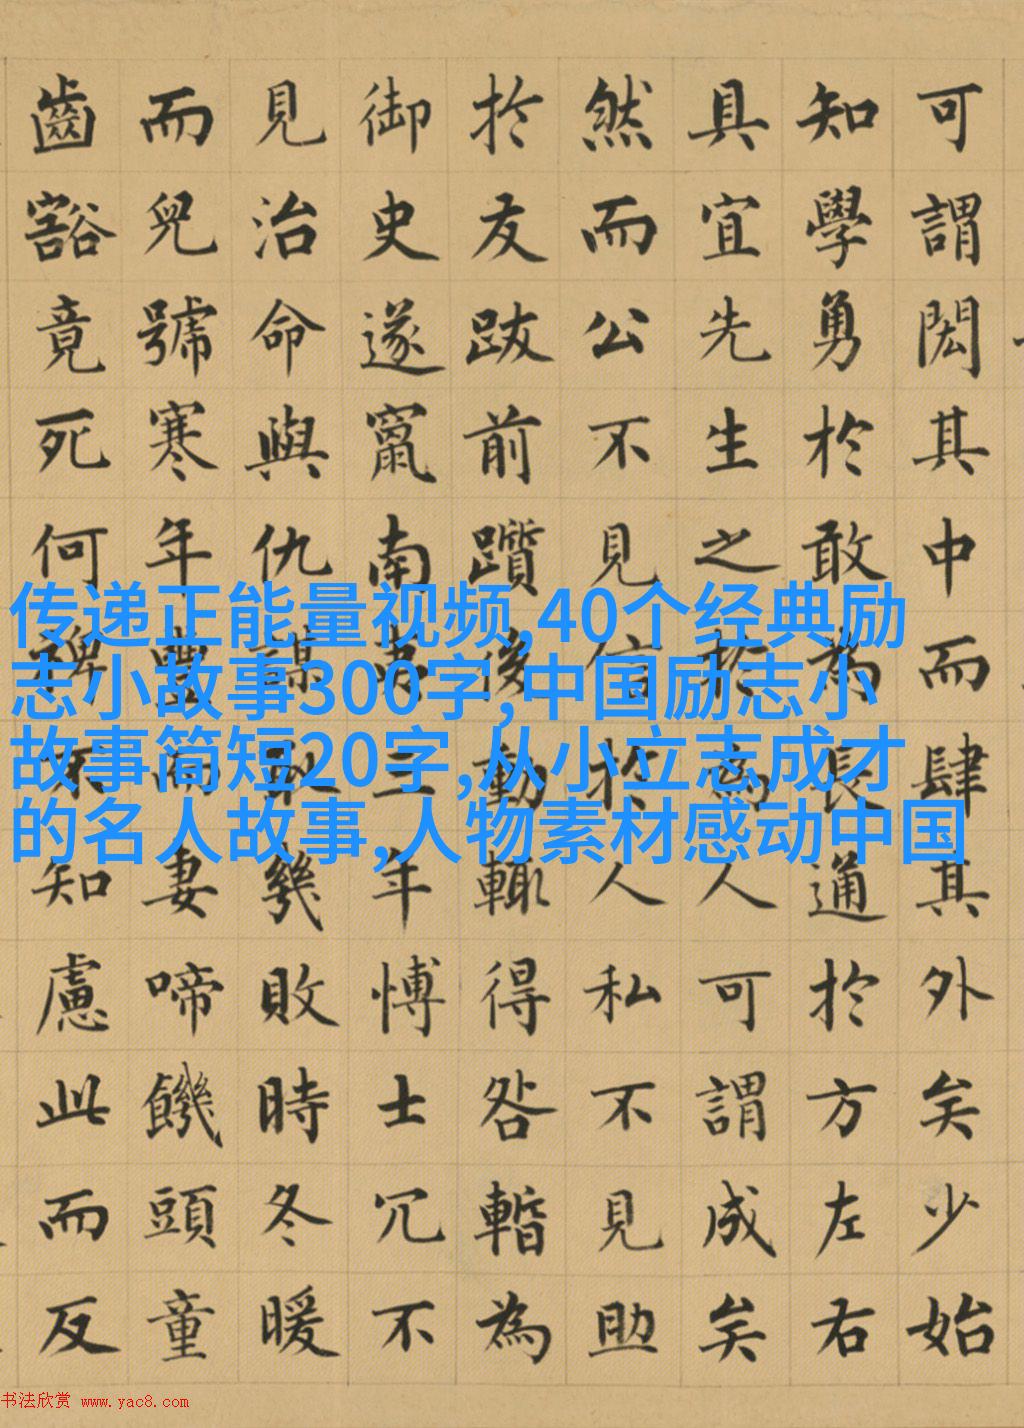 可謂閎其中而肆其外矣少始
知學勇於敢為長通於方左右
具宜先生之於為人可謂成矣
然而公不見信於人私不見助
於友跋前躓後動輒得咎暫為
御史遂竄南夷三年愽士冗不
見治命與仇謀取幾敗時冬暖
而兒號寒年豐而妻啼饑頭童
齒豁竟死何裨不知慮此而反
传递正能量视频,40个经典励
志小故事300字,中国励志小
故事简短20字,从小立志成才
的名人故事,人物素材感动中国
书法欣赏 www.yac8.com